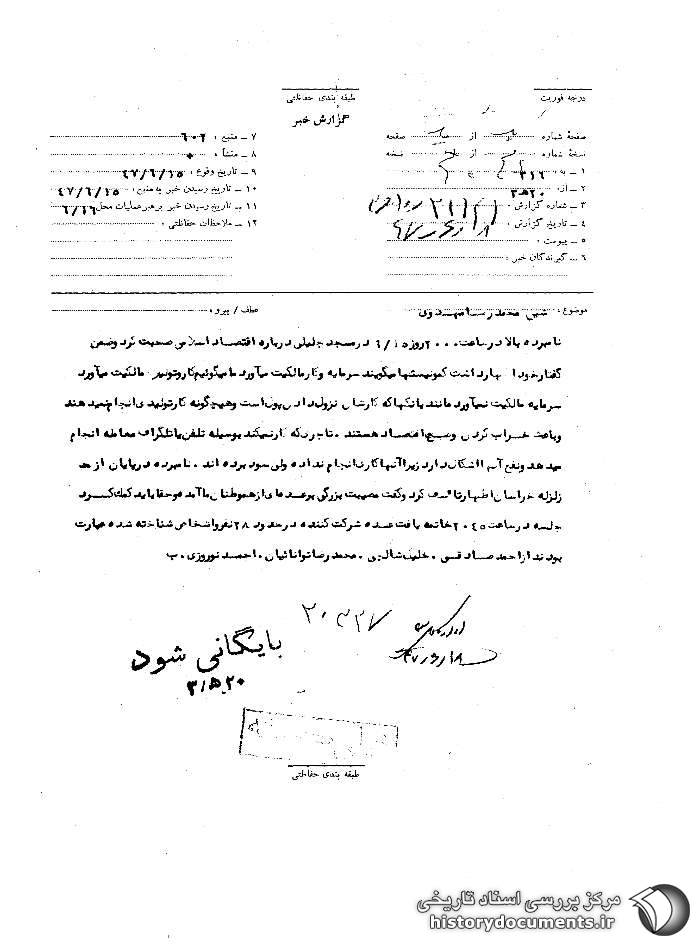 درجه فوریت
طبقه بندی حفاظتی
گزارش خبر
صفحهٔ شماره از صفحه
نسخهٔ شماره از نسخه
۱ ـ به : ۳۱۶
۲ ـ از : ۲۰ ه ۳
۳ ـ شماره گزارش :
۴ ـ تاریخ گزارش :
۵ ـ پیوست :
۶ ـ گیرندگان خبر :
۷ ـ منبع : ۶۰۲
۸ ـ منشأ : ۰
۹ ـ تاریخ وقوع : ۴۷/۶/۱۵
۱۰ ـ تاریخ رسیدن خبر به منبع : ۴۷/۶/۱۵
۱۱ ـ تاریخ رسیدن خبر برهبر عملیات محل : ۶/۱۶
۱۲ ـ ملاحظات حفاظتی :
موضوع : شیخ محمد رضا مهدوی
عطف / پیرو :
نامبرده بالا در ساعت ۲۰۰۰ روز ۶/۱۵ در مسجد جلیلی درباره اقتصاد اسلامی صحبت کرد وضمن
گفتار خود اظهار داشت کمونیستها میگویند سرمایه وکار مالکیت میآورد ما میگوئیم کار وتولید مالکیت میآورد
سرمایه مالکیت نمیآورد مانند بانکها که کارشان نزول دادن پول است وهیچگونه کار تولیدی انجام نمید هند
وباعث خراب کردن وضع اقتصاد هستند . تاجری که کار نمیکند بوسیله تلفن یا تلگراف معامله انجام
مید هد ونفع آنها اشکال دارد زیرا آنها کاری انجام نداده ولی سود برده اند . نامبرده در پایان از
زلزله خراسان اظهار تأسف کرد وگفت مصیبت بزرگی بر عده ای از هموطنان ما آمده و حقا باید کمک کرد
جلسه در ساعت ۲۰۴۵ خاتمه یافت عده شرکت کننده در حدود ۲۸ نفر واشخاص شناخته شده عبارت
بودند از احمد صادقی . خلیل شالچی . محمد رضا توانائیان . احمد نوروزی . ب
۲۰۳۲۷
بایگانی شود
۲۰ ه/۳
طبقه بندی حفاظتی
مرکز بررسی اسناد تاریخی
historydocuments.ir